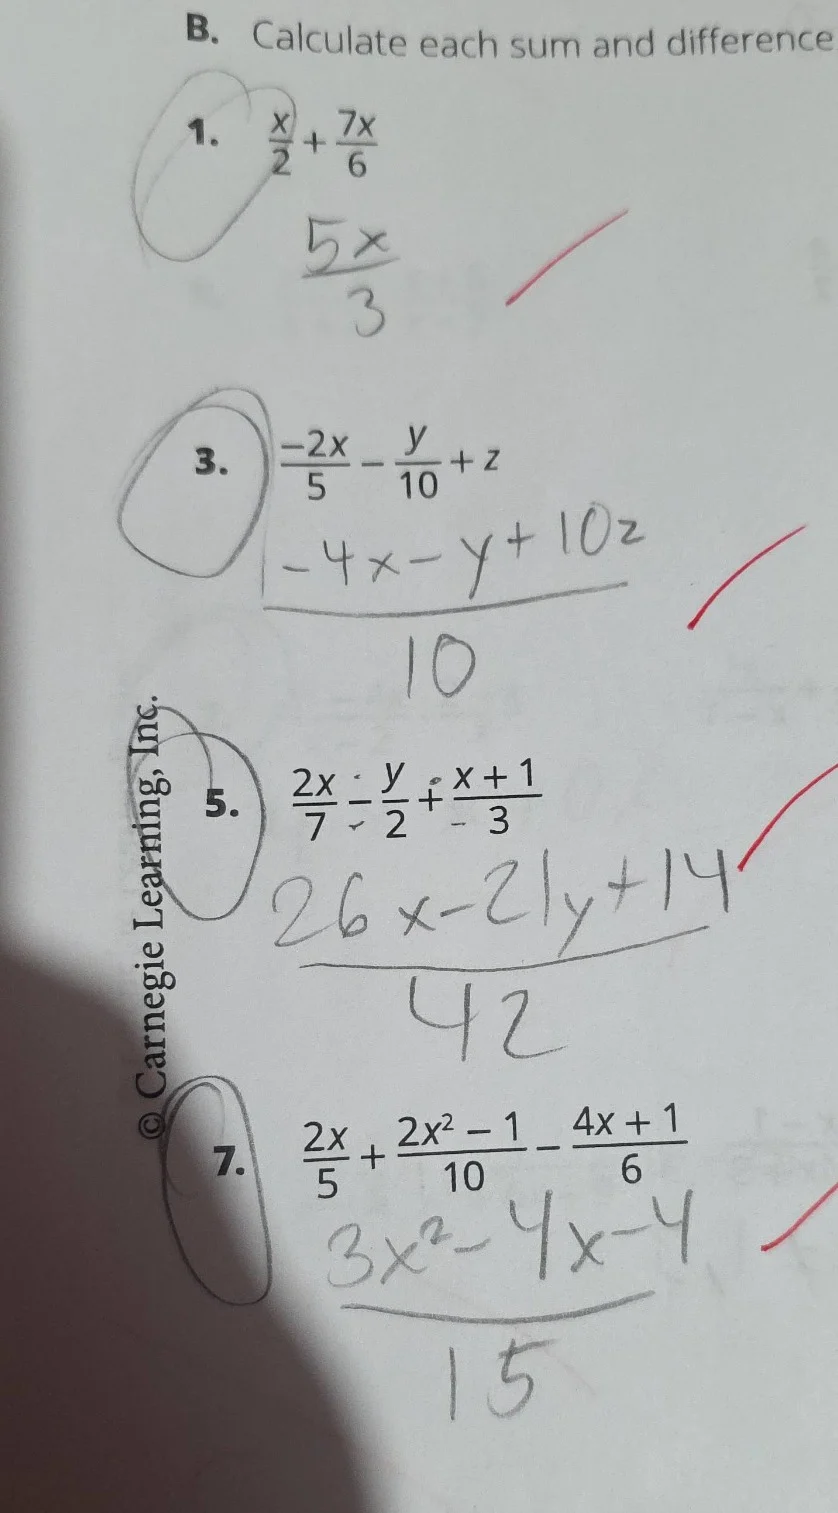 B. Calculate each sum and difference
1. x/2 + 7x/6
5x/3
3. −2x/5 − y/10 + z
-4x-y+10z/10
5. 2x/7 − y/2 + x + 1/3
26x-21y+14/42
7. 2x/5 + 2x² − 1/10 − 4x + 1/6
3x²-4x-4/15
© Carnegie Learning, Inc.